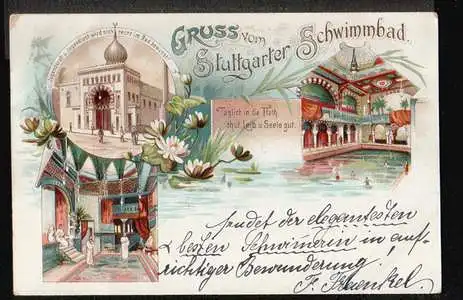 Gruss vom
Stuttgarter Schwimmbad.
Täglich in die Fluth,
thut Leib u. Seele gut.
sendet der elegantesten
& besten Schwimmerin in auf-
richtiger Bewunderung.
F. Haenkel.